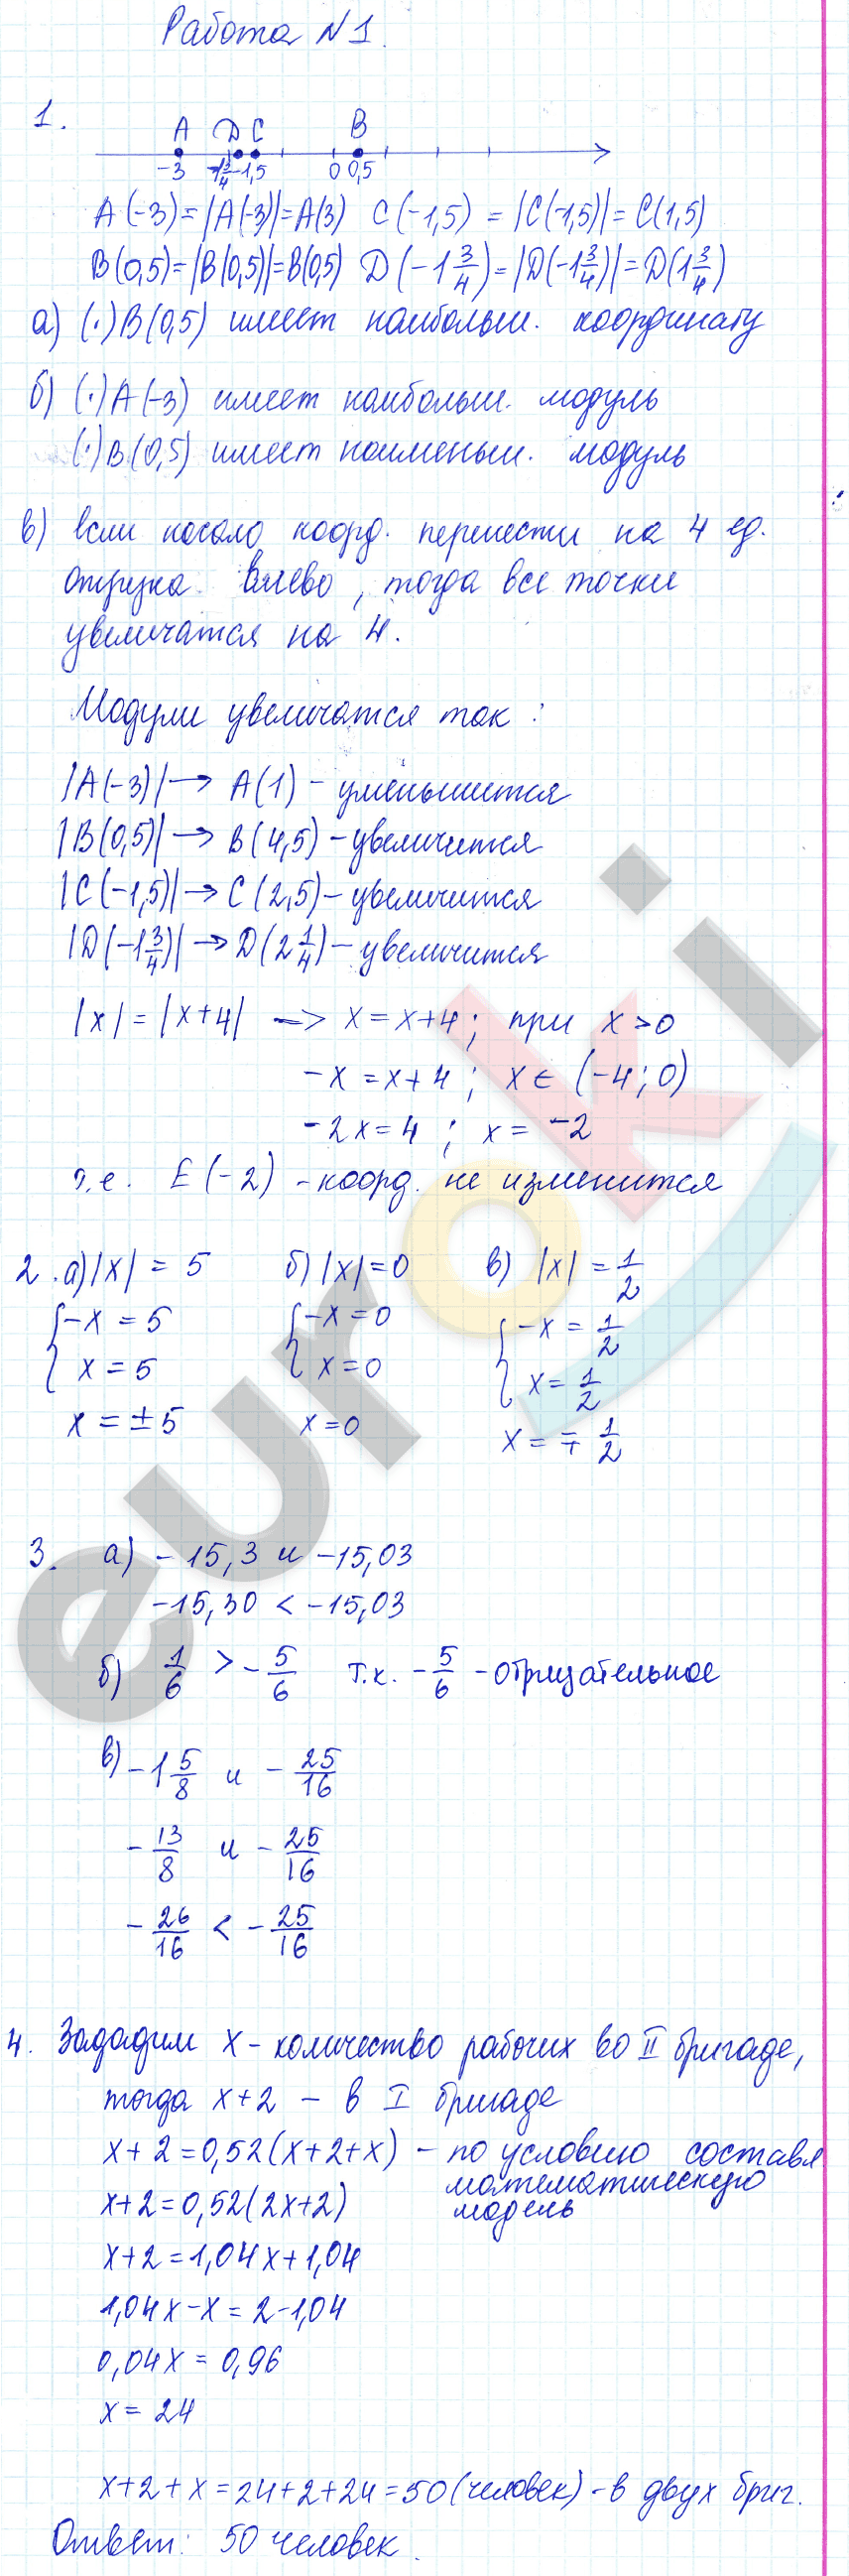 Работа N 1.
1.
A D C B
-3 -1 3/4 -1,5 0 0,5
A(-3)=|A(-3)|=A(3) C(-1,5) = |C(-1,5)|= C(1,5)
B(0,5)=|B(0,5)|=B(0,5) D(-1 3/4)=|D(-1 3/4)|=D(1 3/4)
а) (·)B(0,5) имеет наибольш. координату
б) (·)A(-3) имеет наибольш. модуль
(·)B(0,5) имеет наименьш. модуль
в) если начало коорд. перенести на 4 ед.
отрезка влево, тогда все точки
увеличатся на 4.
Модули увеличатся так:
|A(-3)|→ A(1) - уменьшится
|B(0,5)|→ B(4,5) - увеличится
|C(-1,5)|→ C(2,5) - увеличится
|D(-1 3/4)|→ D(2 1/4) - увеличится
|x|=|x+4| -> x=x+4; при x>0
-x=x+4; x∈(-4;0)
-2x=4; x=-2
т.е. E(-2) - коорд. не изменится
2. а)|x| = 5 б)|x|=0 в) |x| = 1/2
{-x = 5 {-x=0 {-x = 1/2
x = 5 x=0 x= 1/2
x = ±5 x=0 x = ∓ 1/2
3. а) -15,3 и -15,03
-15,30 < -15,03
б) 1/6 > -5/6 т.к. -5/6 - отрицательное
в) -1 5/8 и -25/16
-13/8 и -25/16
-26/16 < -25/16
4. Зададим x - количество рабочих во II бригаде,
тогда x+2 - в I бригаде
x+2=0,52(x+2+x) - по условию составл
математическую
x+2=0,52(2x+2) модель
x+2=1,04x+1,04
1,04x-x=2-1,04
0,04x=0,96
x=24
x+2+x=24+2+24=50(человек) - в двух бриг.
Ответ: 50 человек.
euroki